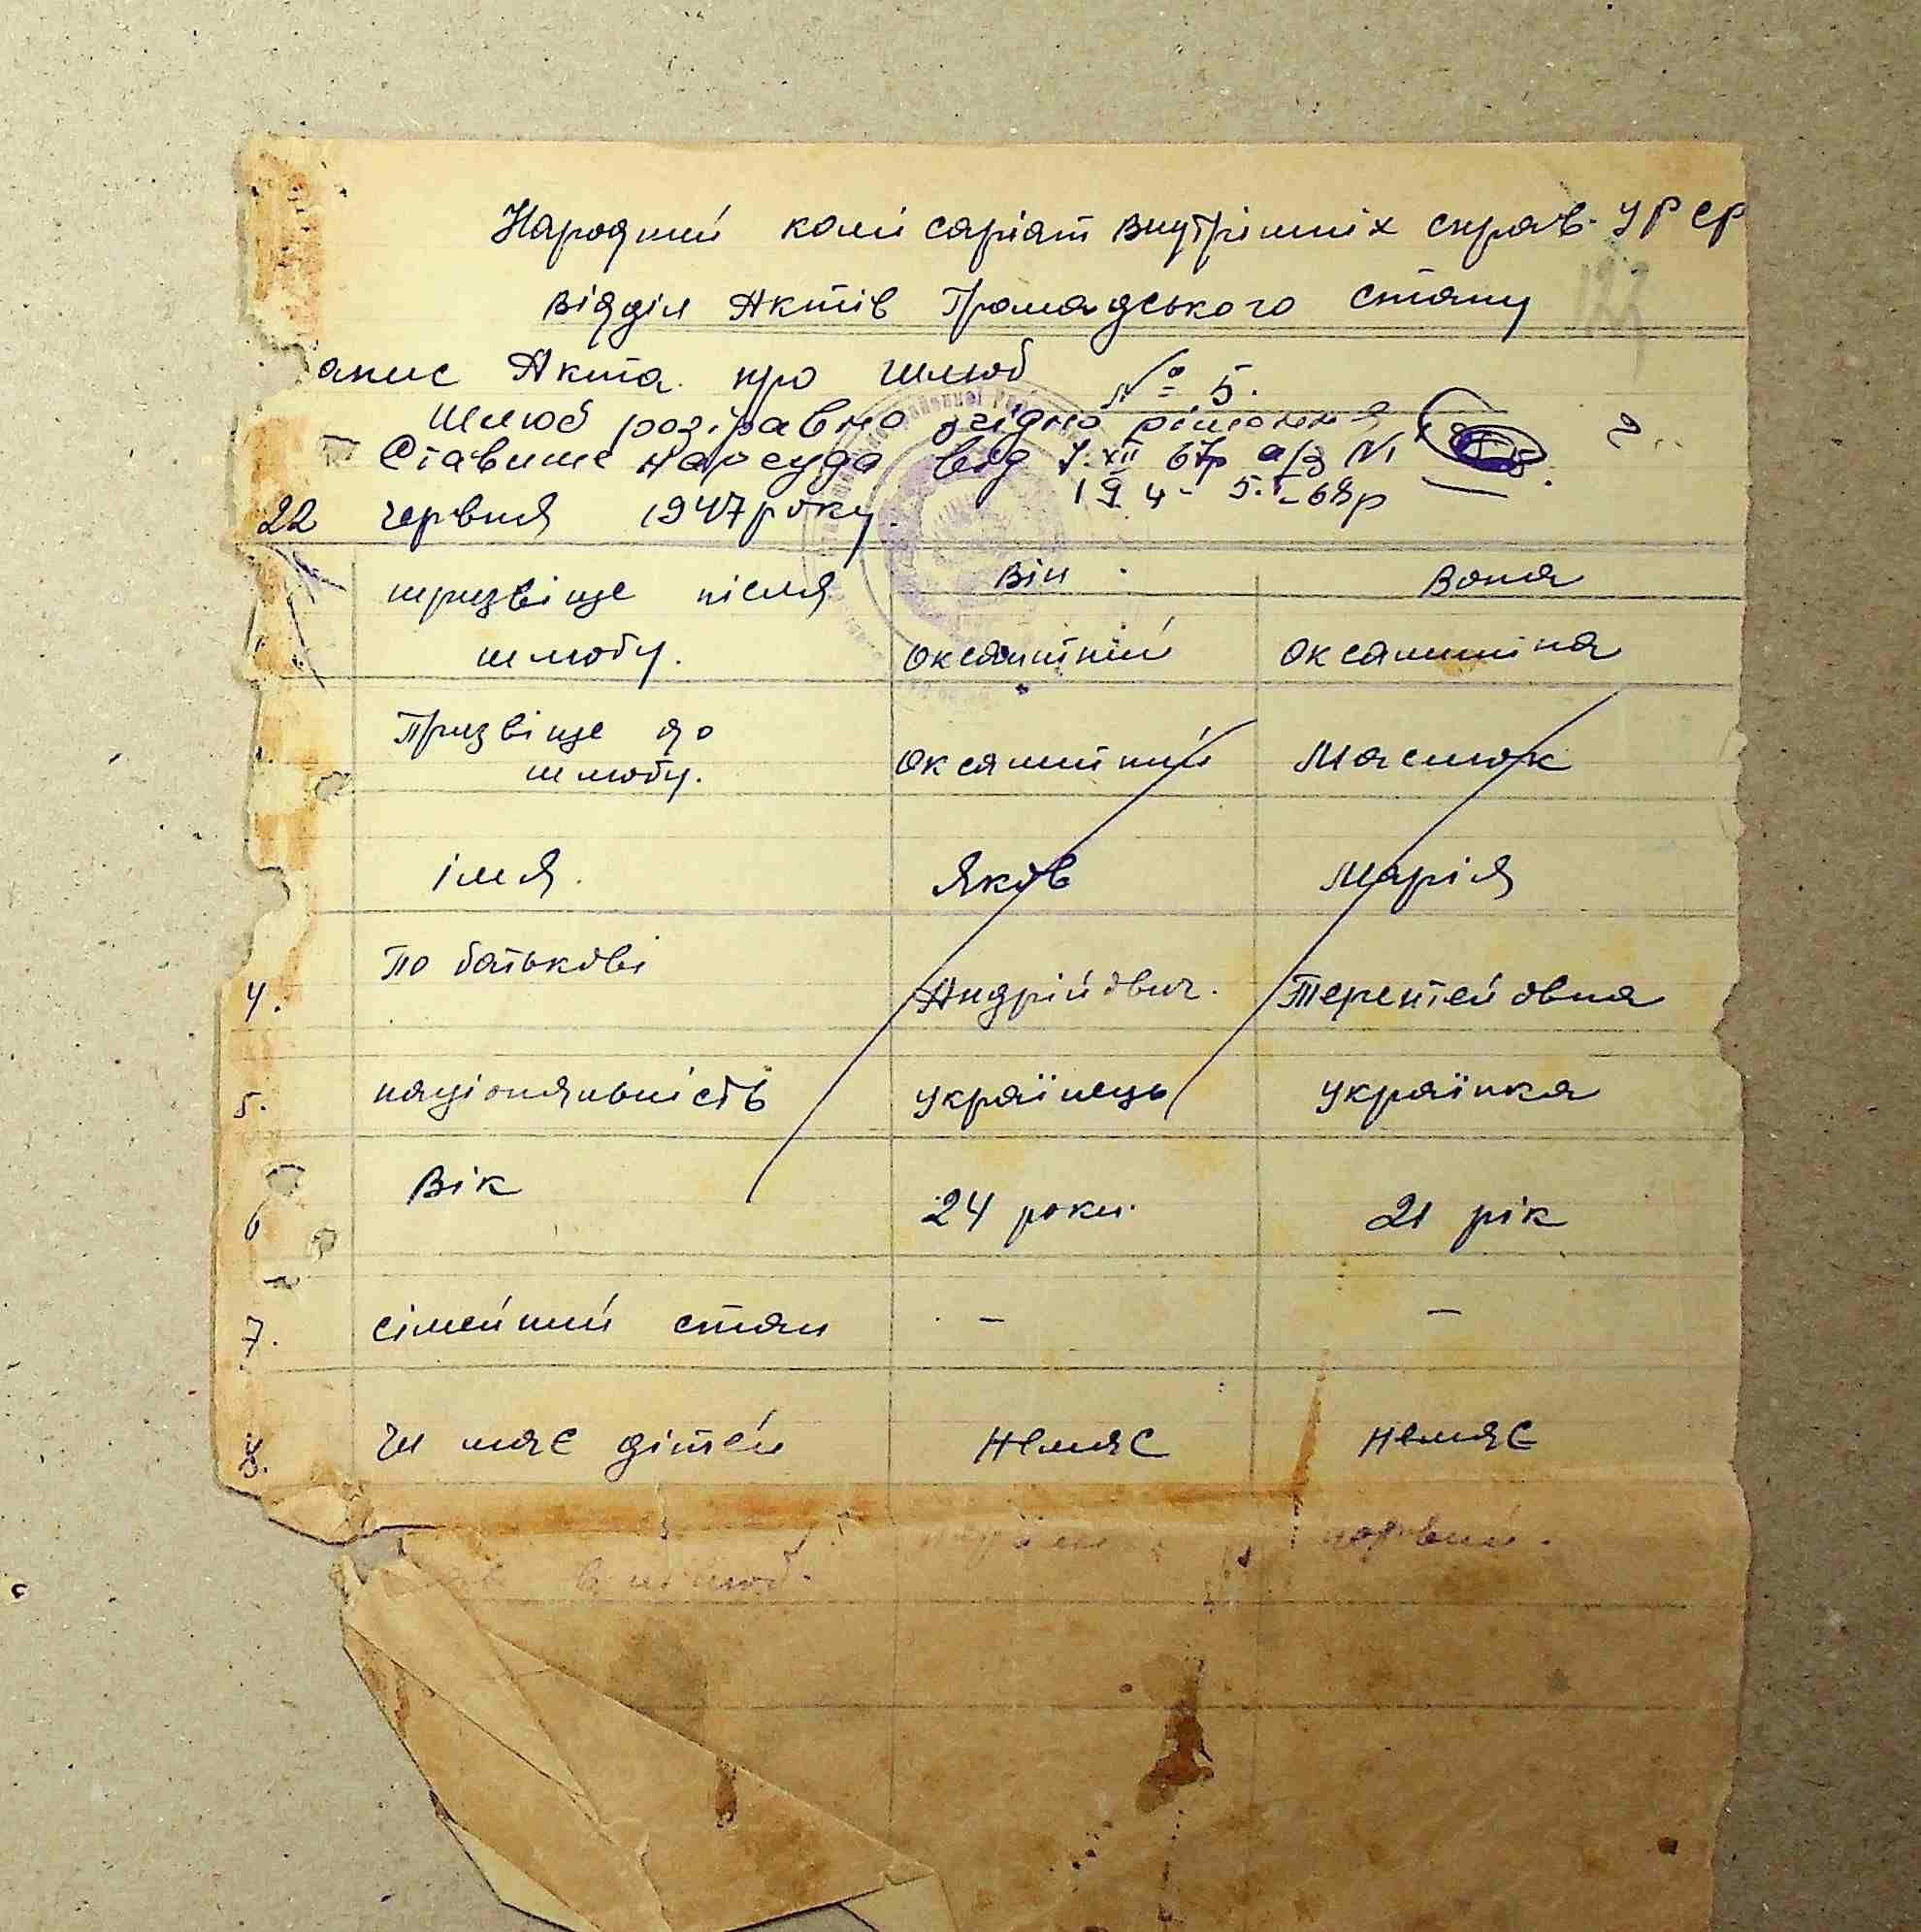 Народний комісаріат внутрішніх справ УРСР
Відділ Актів Громадського стану
апис Акта про шлюб № 5.
Шлюб розірвано згідно рішення
Ставище нарсуда від 7.XII 67р а/з №
194 - 5.I-68р
22 червня 1947 року.
призвіще після Він Вона
шлюбу. Оксамитний Оксамитна
Призвіще до
шлюбу. Оксамитний Маслюк
імя. Яков Марія
4. По батькові Андрійович. Терентейовна
5. національність українець українка
6 Вік 24 роки. 21 рік
7. сімейний стан - -
8. чи має дітей немає немає